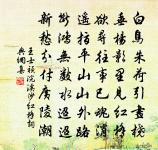 白鳥朱荷引畫橈
垂楊影里見紅橋
欲尋往事已魂消
遙指平山山外路
斷鴻無數水迢迢
新愁分付廣陵潮
王士禎浣溪沙紅橋詞